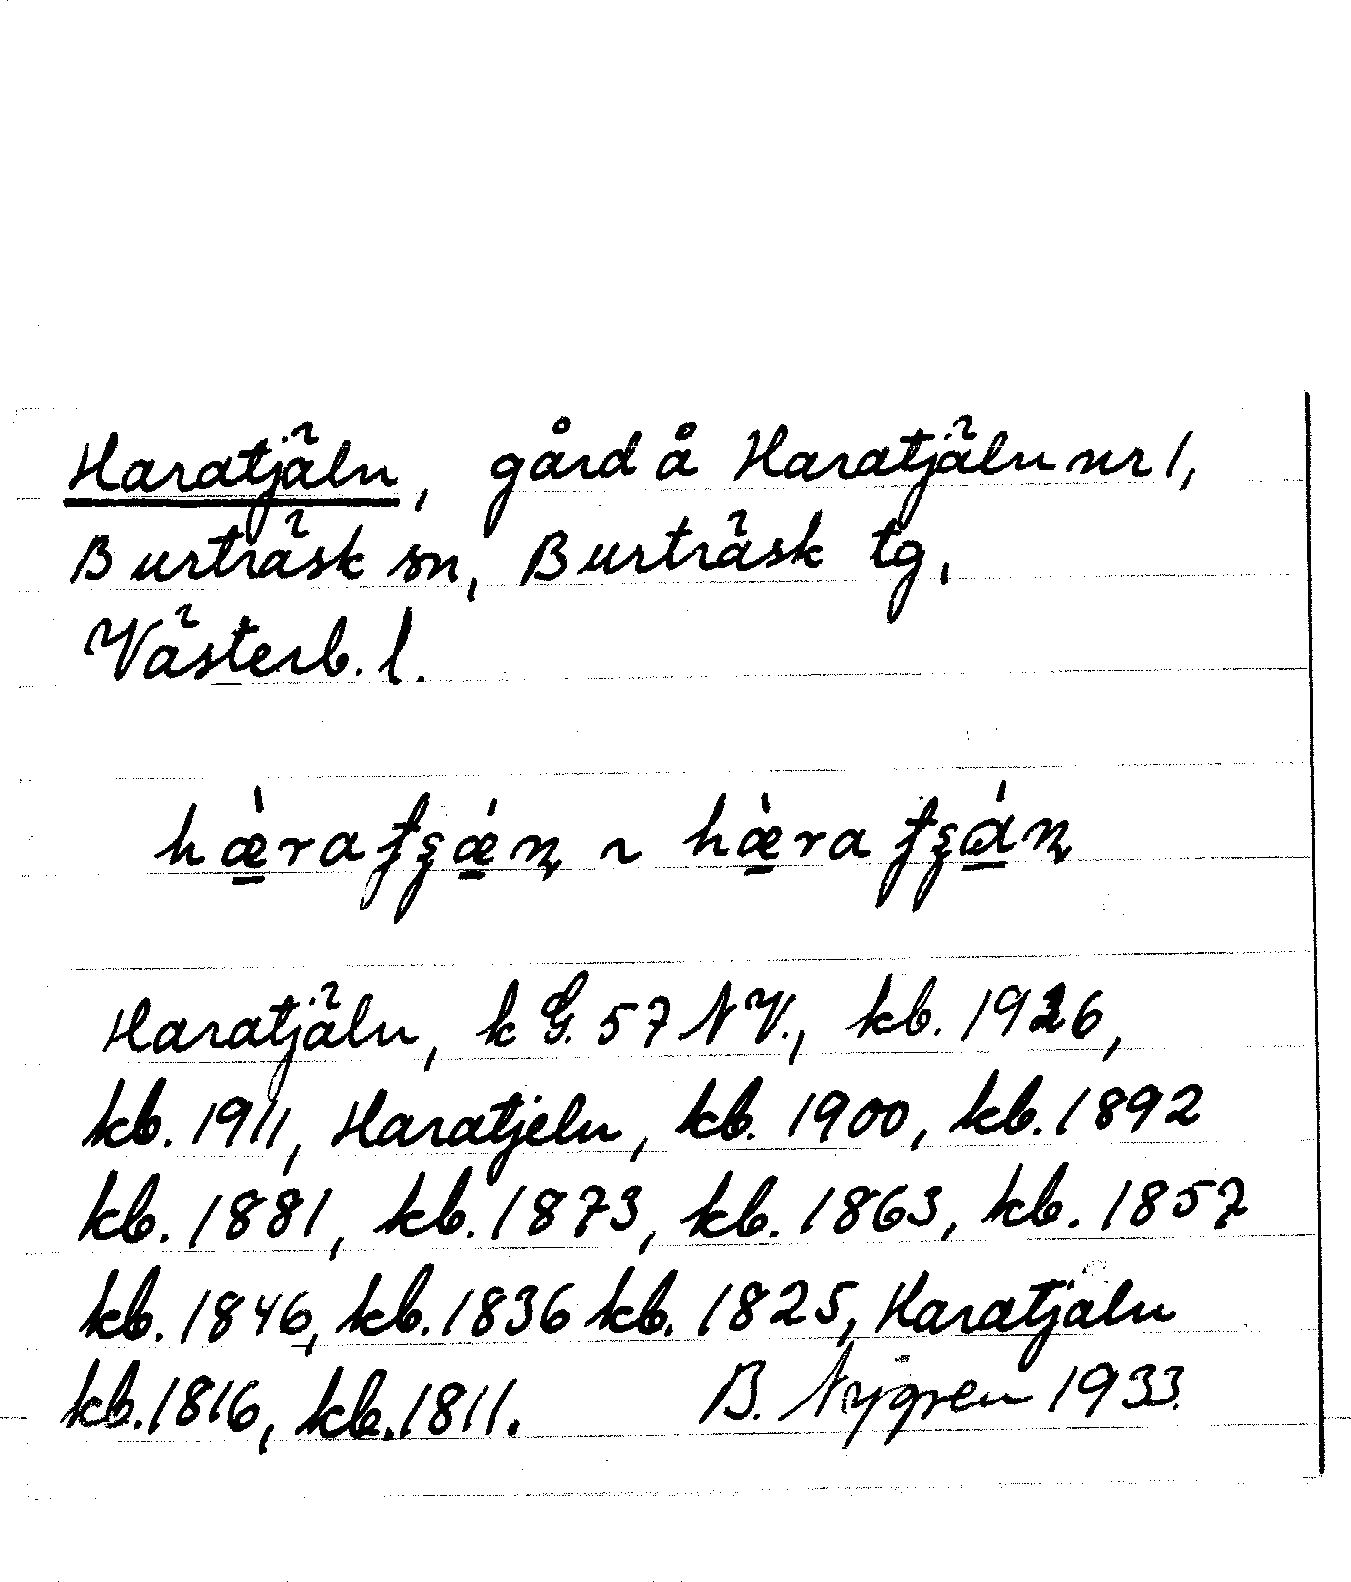 Haratjäln, gård å Haratjäln nr 1,
Burträsk sn, Burträsk tg,
Västerb. l.
Haratjäln, k G. 57 NV., kb. 1926,
kb. 1911, Haratjeln, kb. 1900, kb. 1892
kb. 1881, kb. 1873, kb. 1863, kb. 1857
kb. 1846, kb. 1836 kb. 1825, Haratjäln
kb. 1816, kb. 1811. B. Nygren 1933.